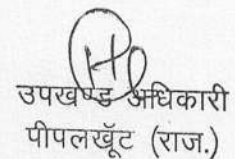 उपखण्ड अधिकारी
पीपलखूॅट (राज.)